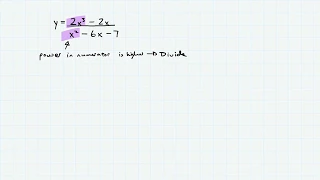 y = 2x³ - 2x
x² - 6x - 7
power in numerator is higher → Divide